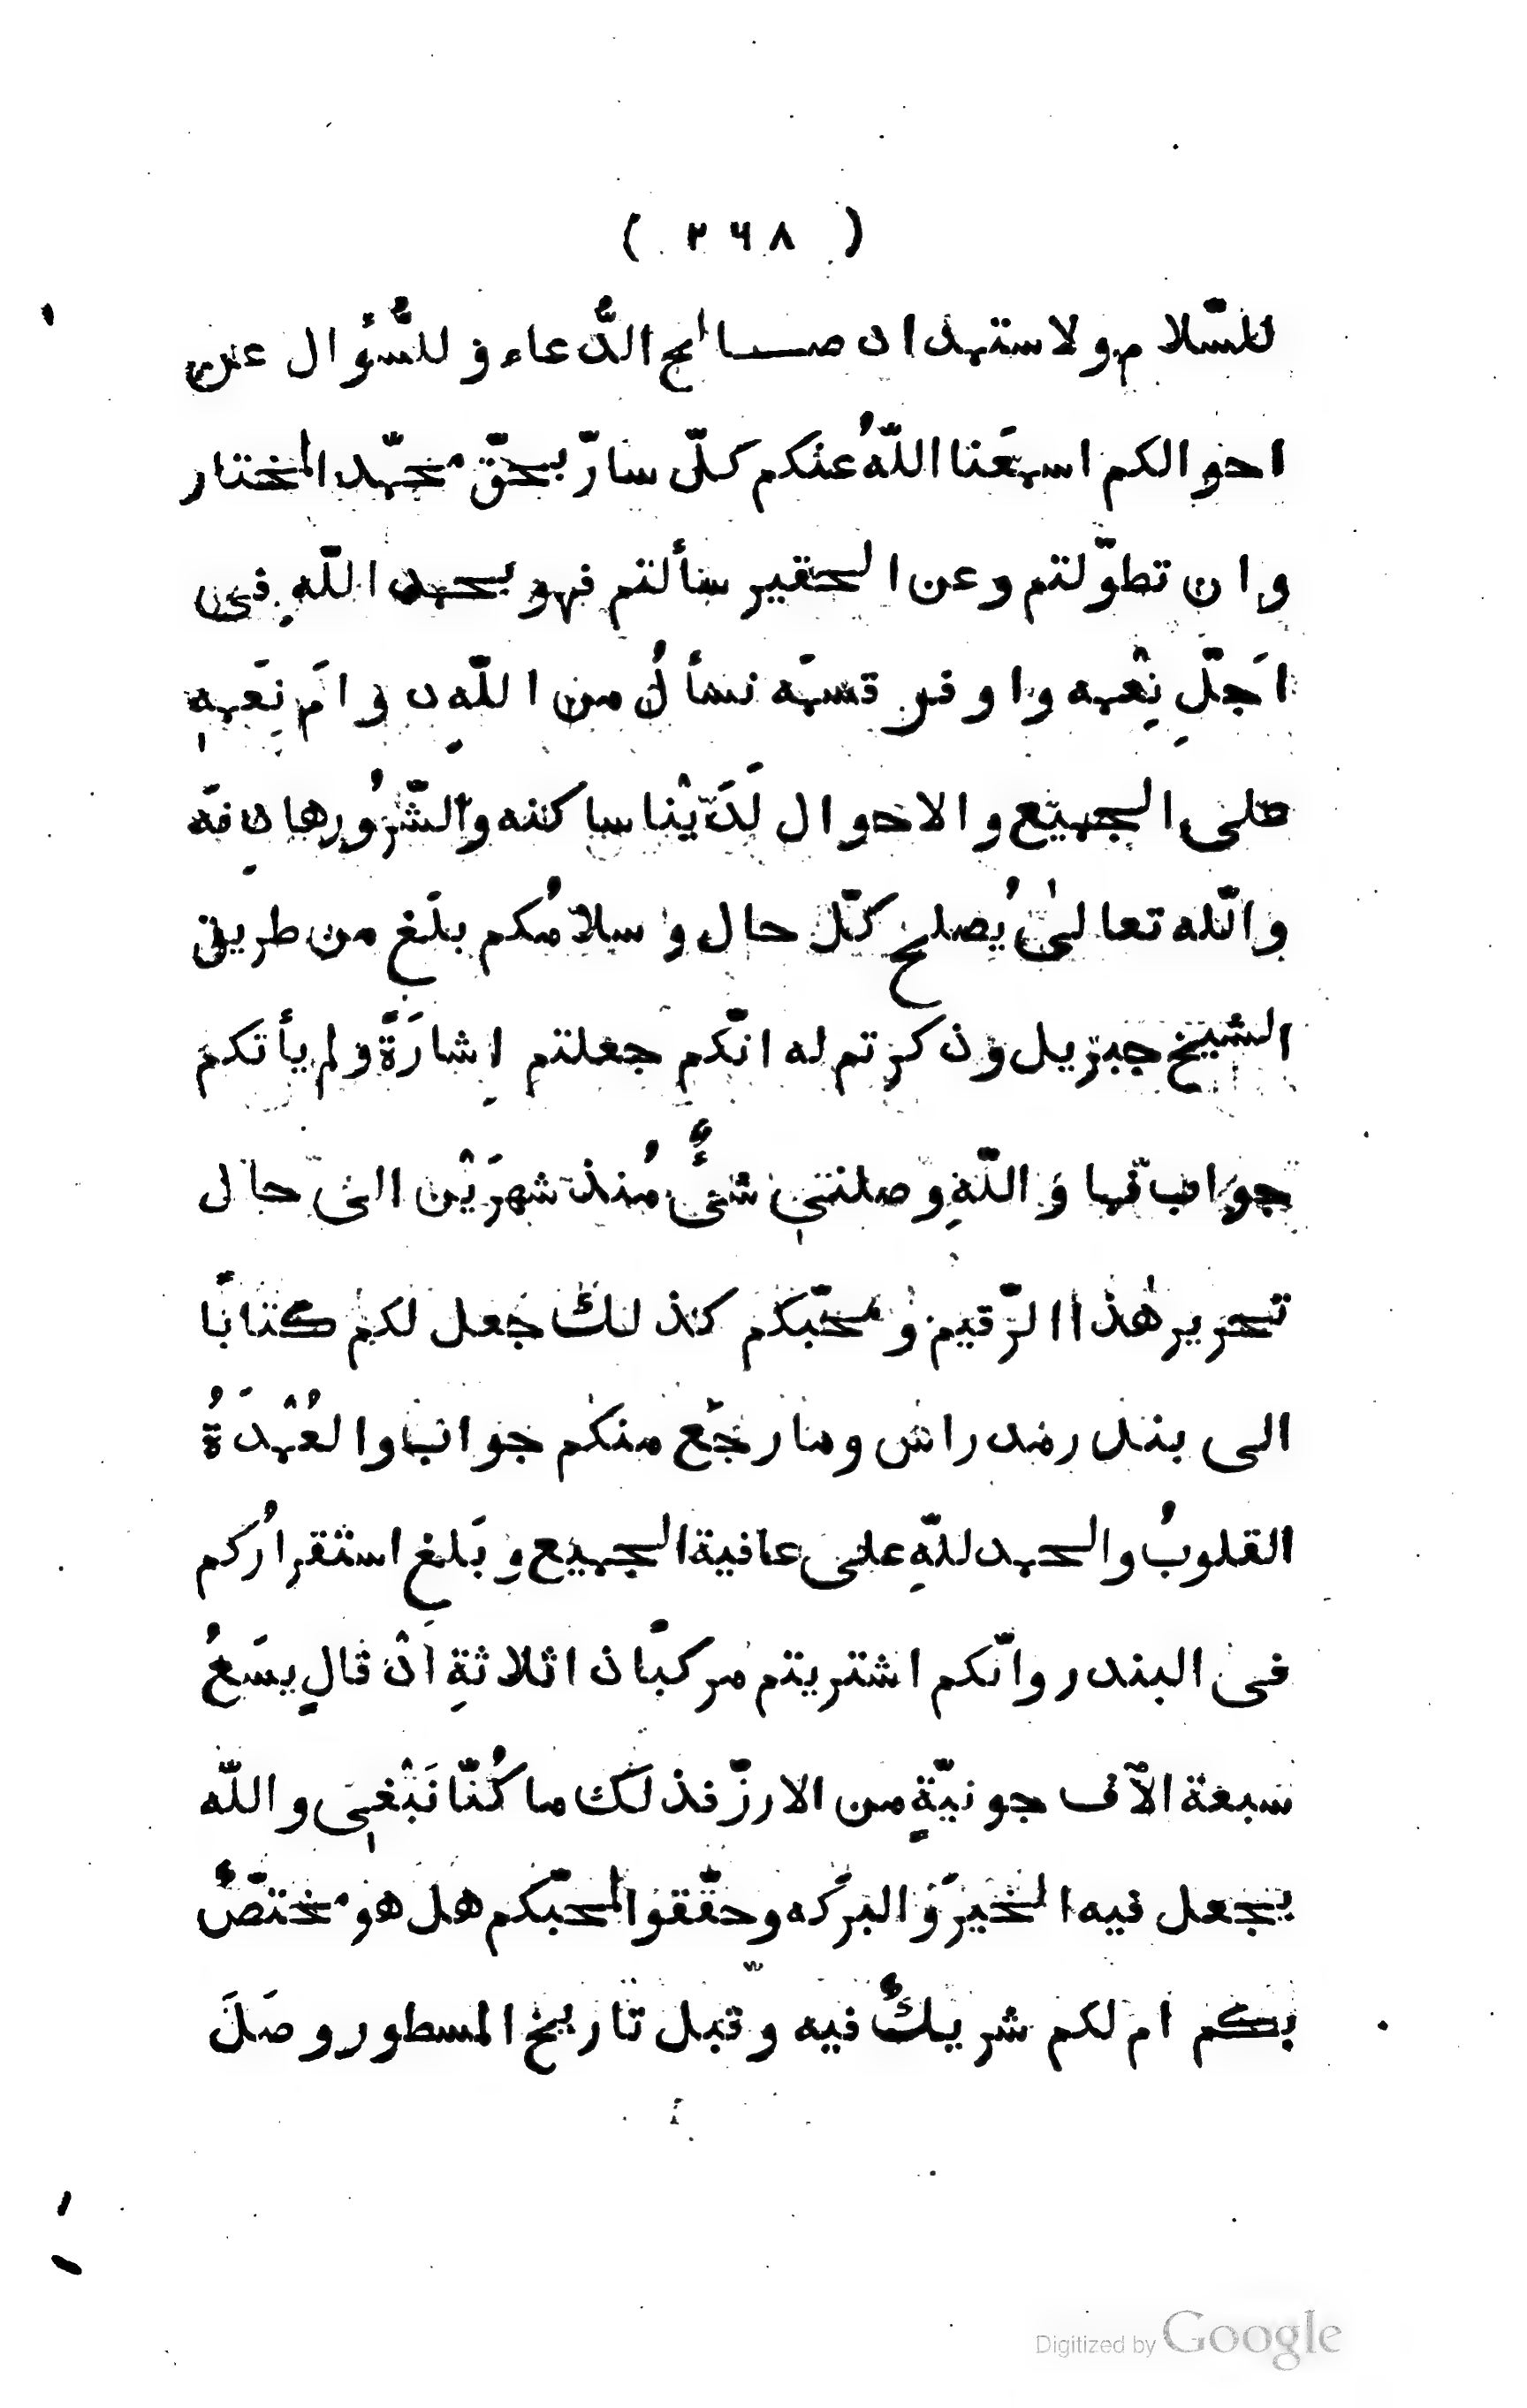 ( ٢٦٨ )
للسّلام ولاستهداد صالح الدُّعاء وللسُّؤال عن
احوالكم اسمعَنا اللّهُ عنكم كلّ سارّ بحقّ محمّد المختار
وان تطوّلتم وعن الحقير سألتم فهو بحمد اللّهِ فى
اَجلّ نِعْمه واوفر قسمَه نسألُ من اللّهِ دوامَ نِعَمِهِ
على الجميع والاحوال لَدَيْنا ساكنه والشّرُور هامِدَه
واللّه تعالىٰ يُصلح كلّ حال وسلامُكم بلَغ من طريق
الشيخ جبريل وذكرتم له انّكم جعلتم اِشارَةً ولم يأتكم
جواب فما وَاللّهِ وصلنىِ شىٌٔ مُنذ شهرَيْن الى حال
تحرير هٰذا الرّقيم ومحبّكم كذلك جعل لكم كتابًا
الى بندر مدراش وما رجَع منكم جواب والعُمْدَةُ
القلوبُ والحمد للّهِ على عافية الجميع وبَلغ استقرارُكم
فى البندر وانّكم اشتريتم مركبًا ذا ثلاثةِ اَدْقالٍ يسَعُ
سبعة الآف جونيّةٍ من الارزّ فذلك ما كُنّا نَبْغىِ واللّه
يجعل فيه الخيرَ والبركه وحقّقوا لمحبّكم هل هو مختصٌّ
بكم ام لكم شريكٌ فيه وقبل تاريخ المسطور وصَلَ
Digitized by Google